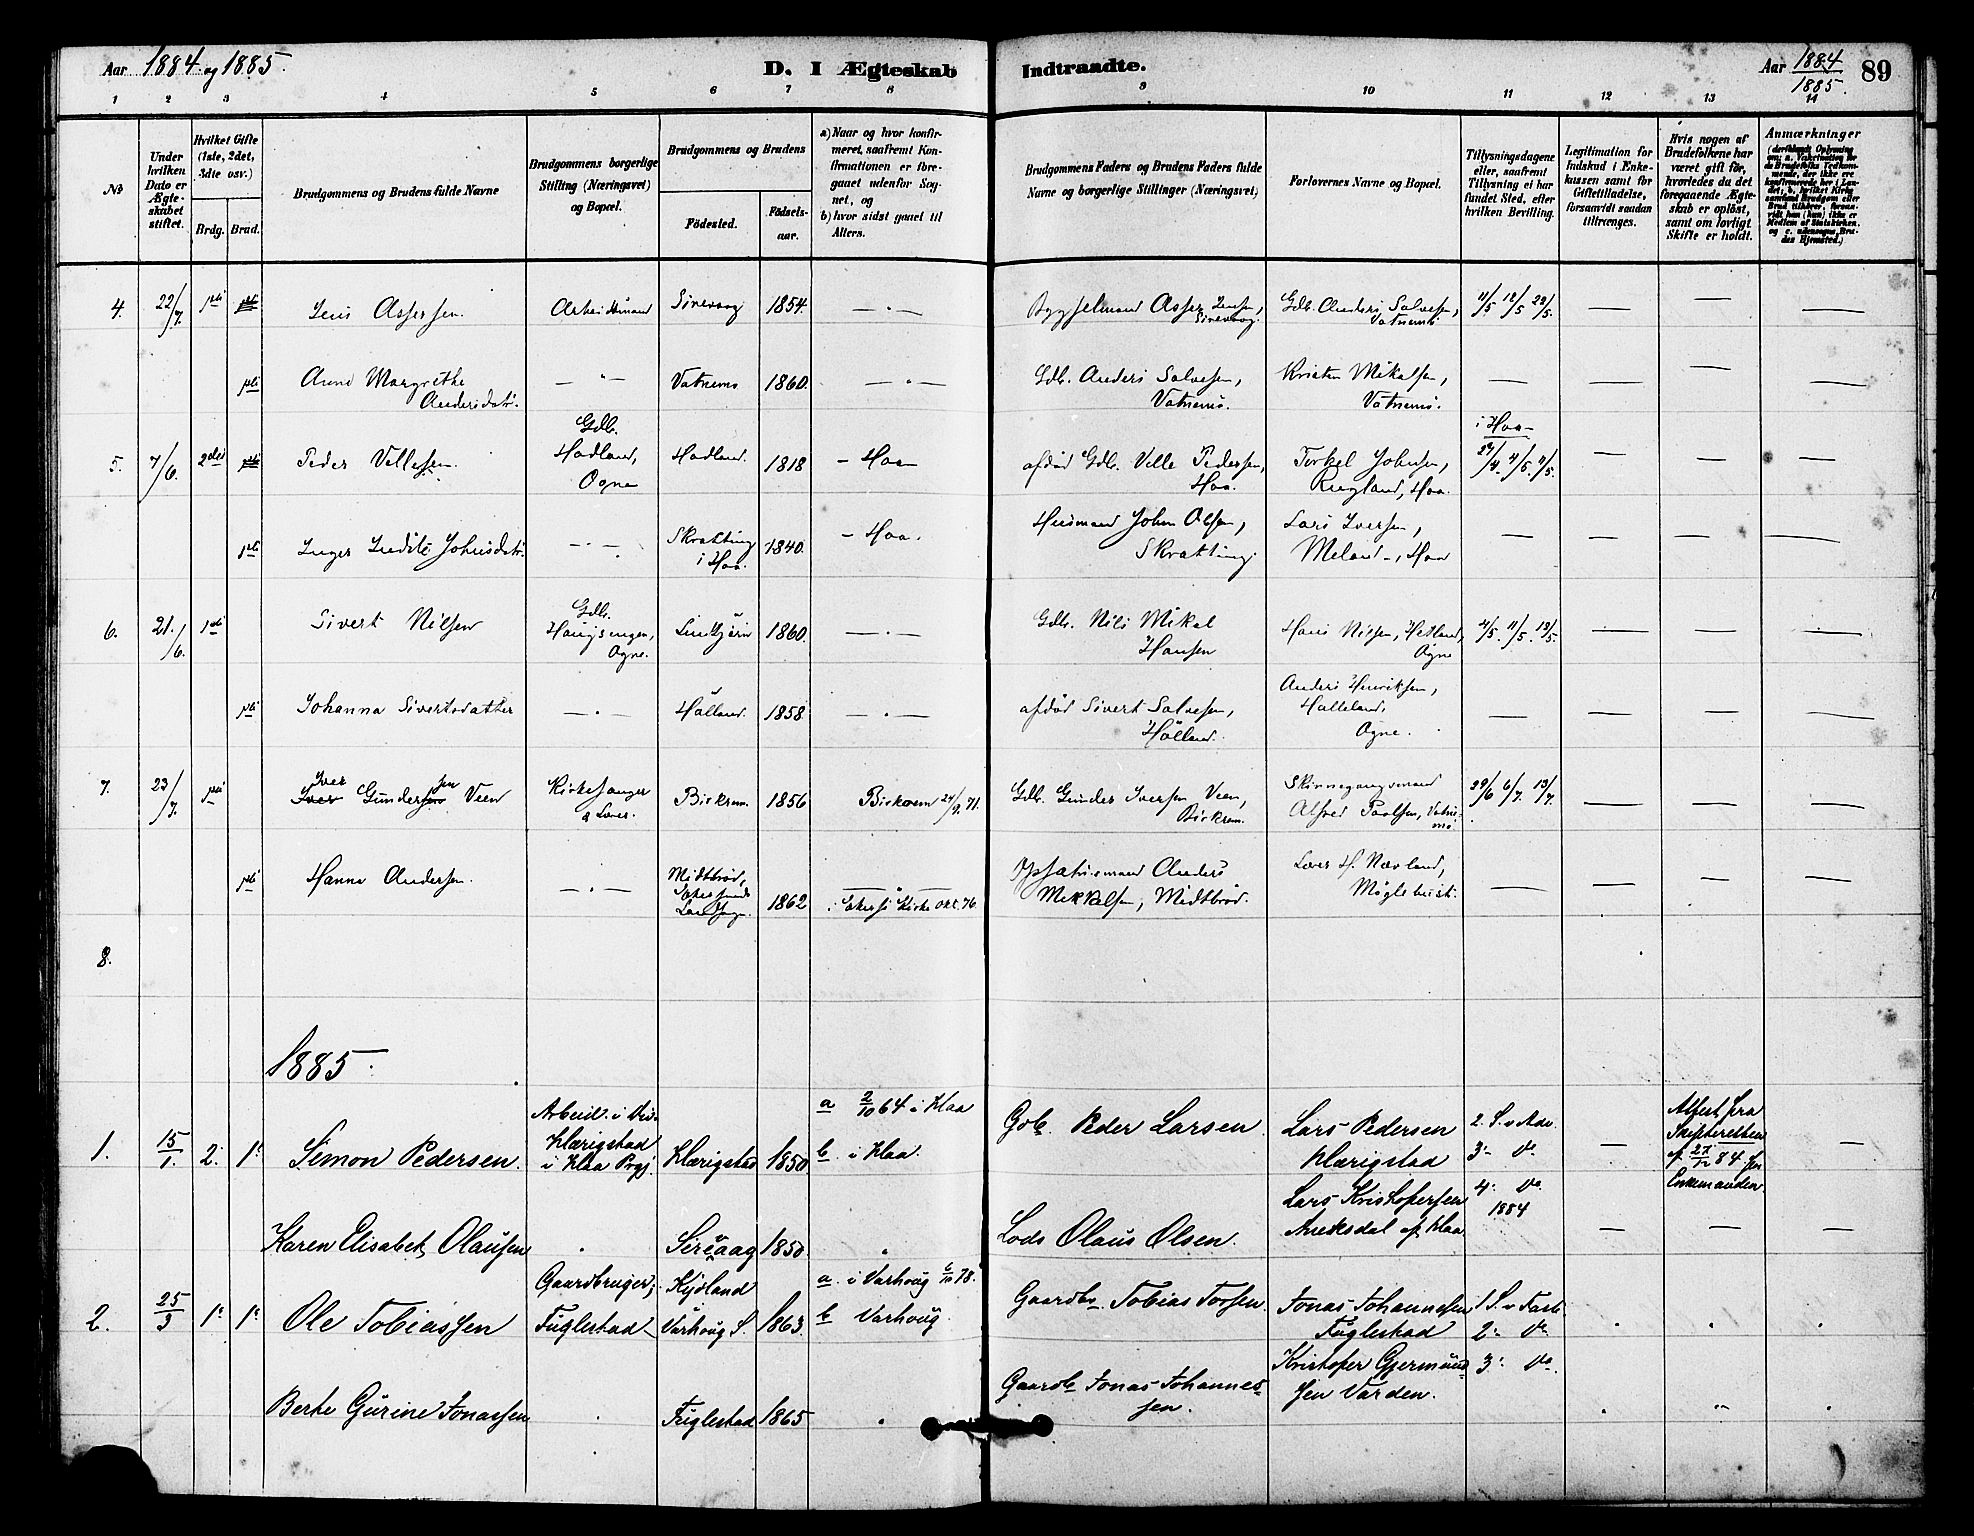 Aar 1884 og 1885. D. I Ægteskab Indtraadte. Aar 1884/1885. 89
1 2 3 4 5 6 7 8 9 10 11 12 13 14
No
Under hvilken Dato er Ægteskabet stiftet.
Hvilket Gifte (1ste, 2det, 3dte osv.)
Brdg. Brud.
Brudgommens og Brudens fulde Navne
Brudgommens borgerlige Stilling (Næringsvei) og Bopæl.
Brudgommens og Brudens
Födested.
Födselsaar.
a) Naar og hvor konfirmeret, saafremt Konfirmationen er foregaaet udenfor Sognet, og
b) hvor sidst gaaet til Alters.
Brudgommens Faders og Brudens Faders fulde Navne og borgerlige Stillinger (Næringsvei)
Forlovernes Navne og Bopæl.
Tillysningsdagene eller, saafremt Tillysning ei har fundet Sted, efter hvilken Bevilling.
Legitimation for Indskud i Enkekassen samt for Giftetilladelse, forsaavidt saadan tiltrænges.
Hvis nogen af Brudefolkene har været gift för, hvorledes da det foregaaende Ægteskab er oplöst, samt om lovligt Skifte er holdt.
Anmærkninger
4. 22/7. 1ste Jens Assersen. Arbeidsmand Sirevaag 1854. — . — Asser Jensen, Sirevaag. Gdb. Anders Salvesen, Vatnemo. 11/5 18/5 22/5. — — —
1ste Anne Margrethe Andersdatr. — " — Vatnemo 1860. — " — Gdb. Anders Salvesen, Vatnemo. Kristen Mikalsen, Vatnemo. — — — —
5. 7/6. 2det Peder Villesen. Gdb. Hadland, Ogne Hadland. 1818 — Haa afdöd Gdb. Ville Pedersen, Haa. Torkel Johnsen, Rugland, Haa. i Haa 27/4. 4/5. 11/5. — — —
1ste Inger Johnsdatr. — . — Skratting i Haa. 1840. — Haa. Husmand John Olsen, Skratting. Lars Iversen, Meland, Haa — — — —
6. 21./6. 1ste Sivert Nilsen Gdb. Ogne. 1860. — . — Gdb. Nils Mikal Hansen Hans Nilsen, Hetland, Ogne 4/5. 11/5. 18/5. — — —
1ste Johanna Sivertsdatter — . — Hölland. 1858 — . — afdöd Sivert Salvesen, Hölland. Anders Henriksen, Halleland, Ogne. — — — —
7. 23/7. 1ste Iver Gundersen Veen Kirkesanger & Lærer. Birkrem. 1856 Birkrem 24/9. 71. Gdb. Gunder Iversen Veen, Birkrem. Skinnegangsmand Alfred Paulsen, Vatnemo. 29/6 6/7. 13/7. — — —
1ste Hanna Andersen. — . — Midtbröd, Ekersunds Landsogn 1862 i Ekers. Kirke Okt. 76. Opsatsmand Anders Mikkelsen, Midtbröd. Lærer H. Nævland, — — — —
8.
1885.
1. 15/1. 2. 1e Simon Pedersen. Arbeid. i Klærigstad i Klaa Prgj. Klærigstad 1850 a 2/10 64 i Klaa b i Klaa. Gdb. Peder Larsen Lars Pedersen Klærigstad 2. S. v Adv. 3 do — Attest fra Skifteretten af 27/12 84 for Enkemanden —
Karen Elisabet Olausen . Serevaag 1850 . Lods Olaus Olsen. Lars Kristofersen af Klaa 4 do 1884 — — —
2. 25/3 1e 1e Ole Tobiassen Gaardbruger, Fuglestad Kydland Varhoug S. 1863. a i Varhoug 6/10 78. b Varhoug Gaardbr Tobias Torsen Jonas Johannessen Fuglestad 1 S. v Fast. 2 do . . .
Berte Gurine Jonassen . Fuglestad 1865 . Gaardb Jonas Johannessen. Kristofer Gjermundsen Varden. 3 do . " .